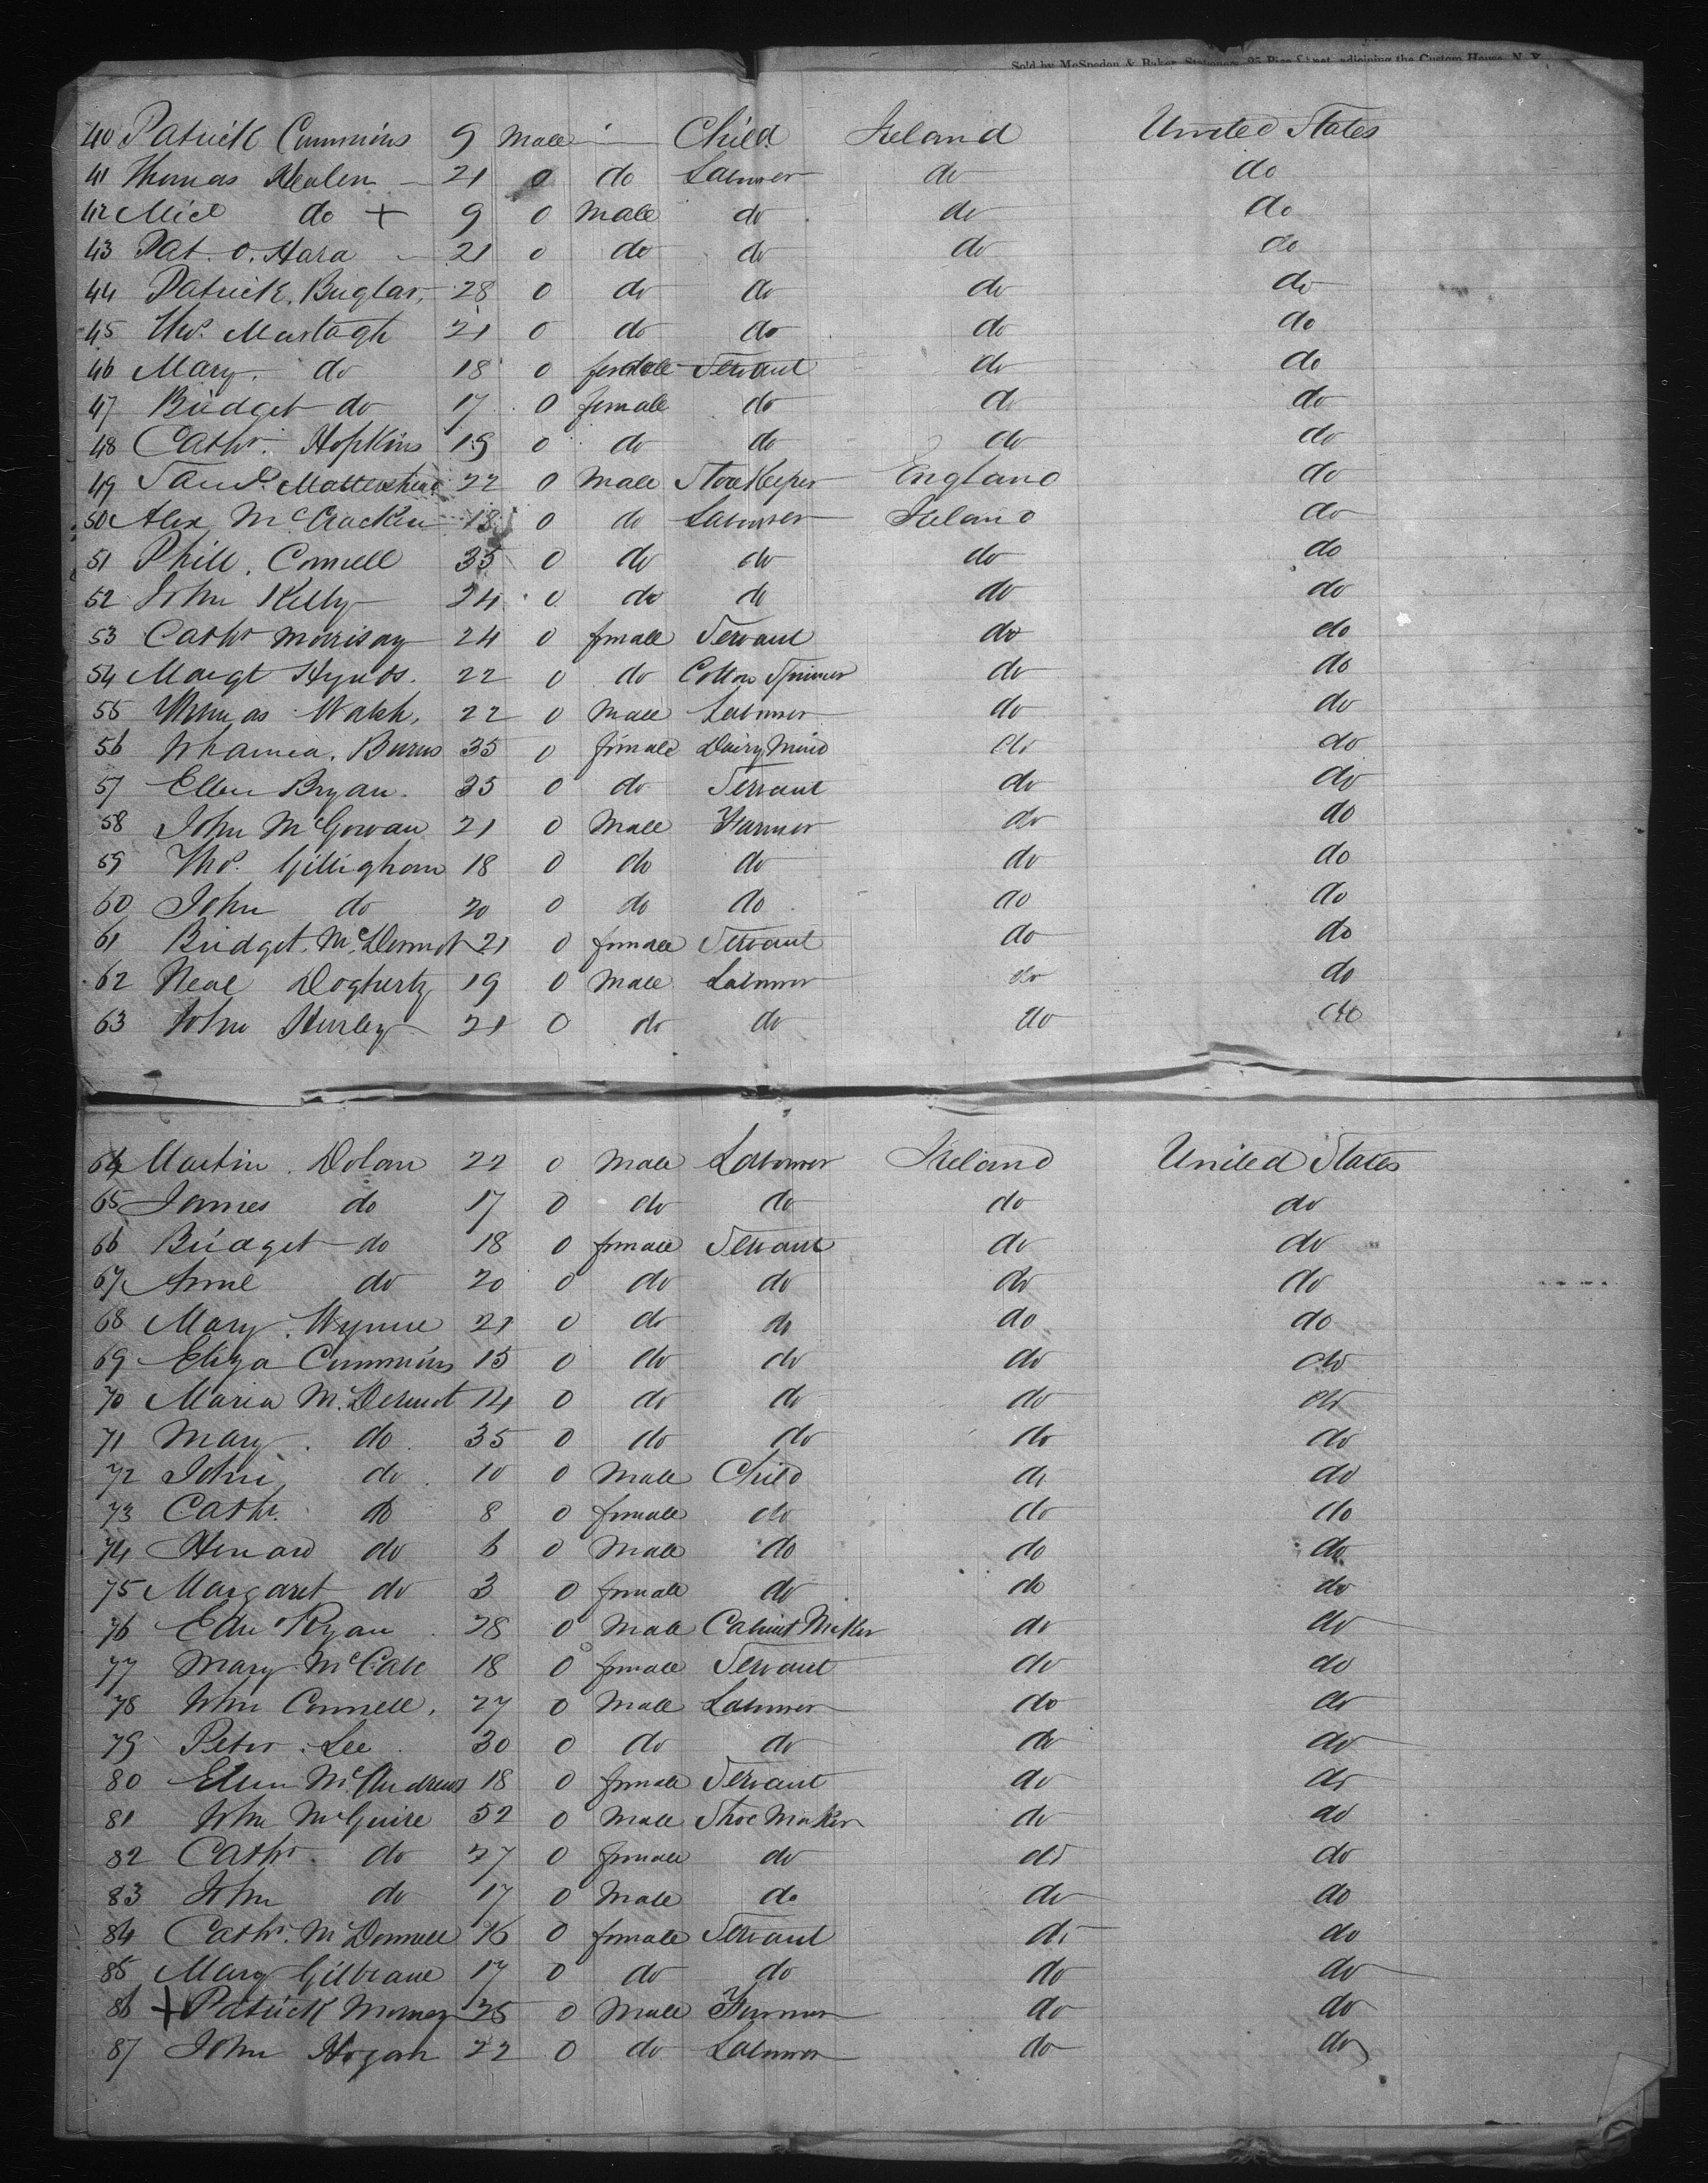 Sold by McSpedon & Baker, Stationers, 25 Pine Street, adjoining the Custom House, N. Y.
40 Patrick Cummins 9 Male Child Ireland United States
41 Thomas Healen 21 0 do Labourer do do
42 Micl do + 9 0 Male do do do
43 Pat. O. Hara 21 0 do do do do
44 Patrick. Buglar, 28 0 do do do do
45 Thos. Murtagh 21 0 do do do do
46 Mary. do 18 0 female Servant do do
47 Bridget do 17 0 female do do do
48 Cathr. Hopkins 19 0 do do do do
49 Saml. 22 0 Male Store Keeper England do
50 Alex McCracken 18 0 do Labourer Ireland do
51 Phill. Connell 35 0 do do do do
52 John Kelly 24 0 do do do do
53 Cathr Morrisay 24 0 female Servant do do
54 Margt Hynds. 22 0 do Cotton Spinner do do
55 Thomas Walsh. 22 0 Male Labourer do do
56 Burns 35 0 female Dairy Maid do do
57 Ellen Bryan. 35 0 do Servant do do
58 John McGowan 21 0 Male Farmer do do
59 Thos. Gillighan 18 0 do do do do
60 John do 20 0 do do do do
61 Bridget. McDermot 21 0 female Servant do do
62 Neal Doghertz 19 0 Male Labourer do do
63 John Hurley 21 0 do do do do
64 Martin. Dolan 22 0 Male Labourer Ireland United States
65 James do 17 0 do do do do
66 Bridget do 18 0 female Servant do do
67 Anne do 20 0 do do do do
68 Mary. Wynne 21 0 do do do do
69 Eliza Cummins 15 0 do do do do
70 Maria McDermot 14 0 do do do do
71 Mary. do. 35 0 do do do do
72 John do. 10 0 Male Child do do
73 Cathr. do 8 0 female do do do
74 do 6 0 Male do do do
75 Margaret do 3 0 female do do do
76 Edw Ryan 28 0 Male Cabinet Maker do do
77 Mary McCabe 18 0 female Servant do do
78 John Connell. 27 0 Male Labourer do do
79 Peter. Lee 30 0 do do do do
80 Ellen McAndrews 18 0 female Servant do do
81 John McGuire 52 0 Male Shoe Maker do do
82 Cathr. do 27 0 female do do do
83 John do 17 0 Male do do do
84 Cathr. McDonnell 16 0 female Servant do do
85 Mary Gilbrane 17 0 do do do do
86 + Patrick 25 0 Male Farmer do do
87 John Hogan 22 0 do Labourer do do